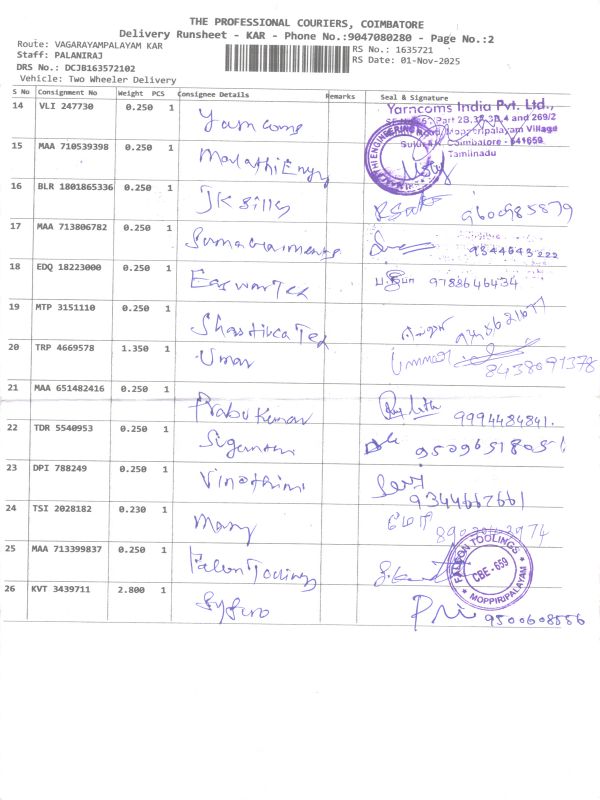 THE PROFESSIONAL COURIERS, COIMBATORE
Delivery Runsheet - KAR - Phone No.:9047080280 - Page No.:2
Route: VAGARAYAMPALAYAM KAR
RS No.: 1635721
Staff: PALANIRAJ
RS Date: 01-Nov-2025
DRS No.: DCJB163572102
Vehicle: Two Wheeler Delivery
S No Consignment No Weight PCS Consignee Details Remarks Seal & Signature
14 VLI 247730 0.250 1 Yarn coms
Yarncoms India Pvt. Ltd.,
Part 2B, 4 and 269/2
Mopperipalayam Village
Sulur Coimbatore - 641659
Tamilnadu
15 MAA 710539398 0.250 1 Malathi Engg
16 BLR 1801865336 0.250 1 JK Silks 9600985879
17 MAA 713806782 0.250 1 9344643222
18 EDQ 18223000 0.250 1 Easwar Tex 9788646434
19 MTP 3151110 0.250 1 Shastika Tex
20 TRP 4669578 1.350 1 Umar 8438091378
21 MAA 651482416 0.250 1 Prabu Kumar 9994484841.
22 TDR 5540953 0.250 1
23 DPI 788249 0.250 1 Vinothini 9344667661
24 TSI 2028182 0.230 1 Mary
25 MAA 713399837 0.250 1 Falcon Toolings
FALCON TOOLINGS
CBE-659
MOPPIRIPALAYAM
26 KVT 3439711 2.800 1 9500608556